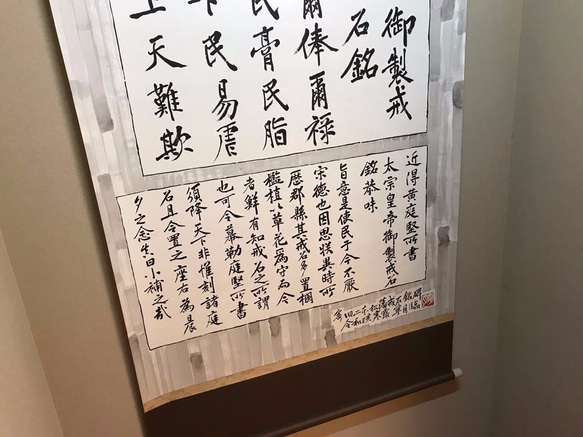 御製戒
石銘
爾俸爾禄
民膏民脂
下民易虐
上天難欺
近得黄庭堅所書
太宗皇帝御製戒石
銘恭味
旨意是使民于今不厭
宋德也因思朕異時所
歴郡縣其戒石多置欄
檻植以草花為守而令
者鮮有知戒石之所謂
也可令摹勒庭堅所書
須降天下非惟刻諸庭
石且令置之座右為晨
夕之念豈曰小補之哉